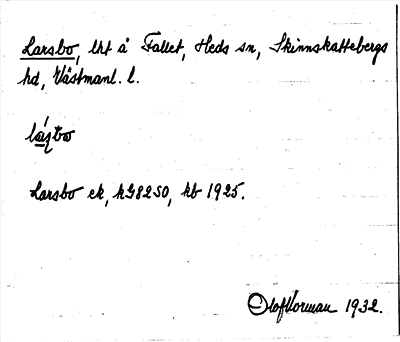 Larsbo, lht å Fallet, Heds sn, Skinnskattebergs
hd, Västmanl. l.
Larsbo ek, kb 1925.
Olof Norman 1932.